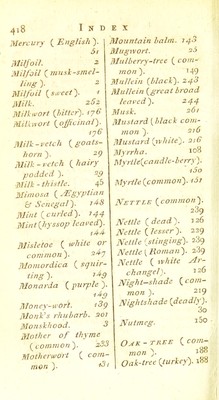 418 INDEX
Mercury (English).
51
Milfoil. 2
Milfoil (musk-smel-
ling). 2
Milfoil (sweet). 1
Milk. 262
Milkwort (bitter). 176
Milkwort (officinal).
176
Milk-vetch (goats-
horn). 29
Milk-vetch (hairy
podded). 29
Milk-thistle. 46
Mimosa (Ægyptian
& Senegal). 148
Mint (curled). 144
Mint (hyssop leaved).
144
Misletoe (white or
common). 247
Momordica (squir-
ting). 149
Monarda (purple).
149
Money-wort. 139
Monk's rhubarb. 201
Monkshood. 3
Mother of thyme
(common). 233
Motherwort (com-
mon). 131
Mountain balm. 143
Mugwort. 25
Mulberry-tree (com-
mon). 149
Mullein (black). 243
Mullein (great broad
leaved). 244
Musk. 261
Mustard (black com-
mon). 216
Mustard (white). 216
Myrrha. 108
Myrtle (candle-berry).
150
Myrtle (common). 151
NETTLE (common).
239
Nettle (dead). 126
Nettle (lesser). 239
Nettle (stinging). 239
Nettle (Roman). 239
Nettle (white Ar-
changel). 126
Night-shade (com-
mon). 219
Nightshade (deadly).
30
Nutmeg. 150
OAK-TREE (com-
mon). 188
Oak-tree (turkey). 188